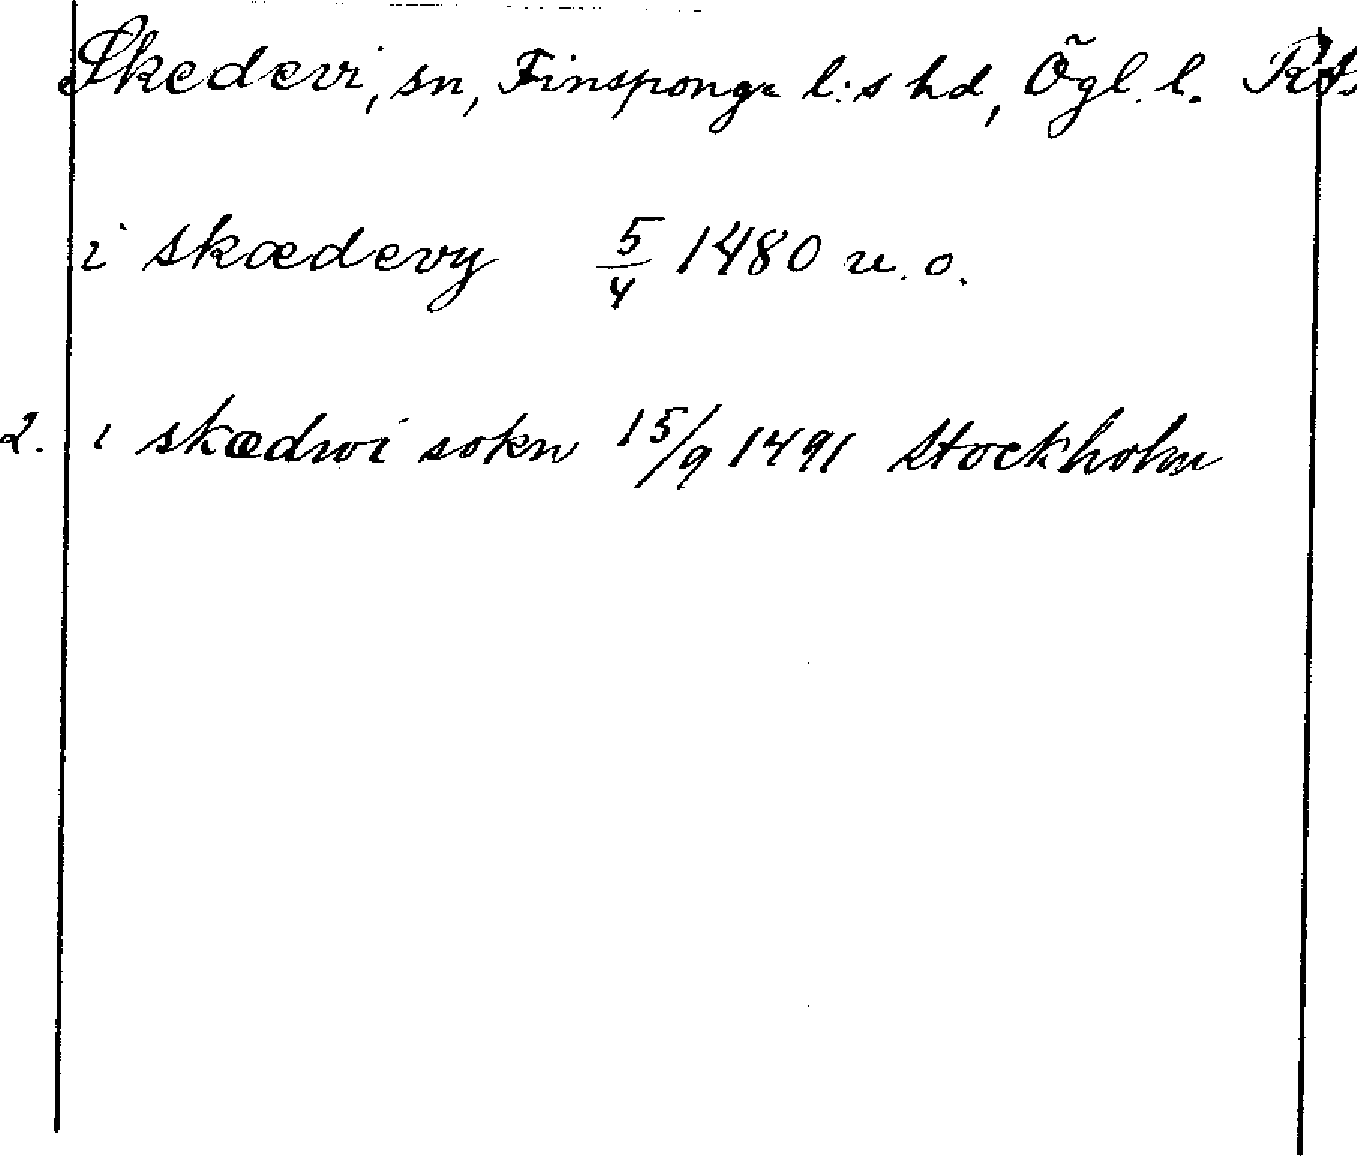 Skedevi, sn, Finsponga l:s hd, Ögl. l. RA.
i skædevy 5/4 1480 u. o.
2. i skædwi sokn 15/9 1491 Stockholm